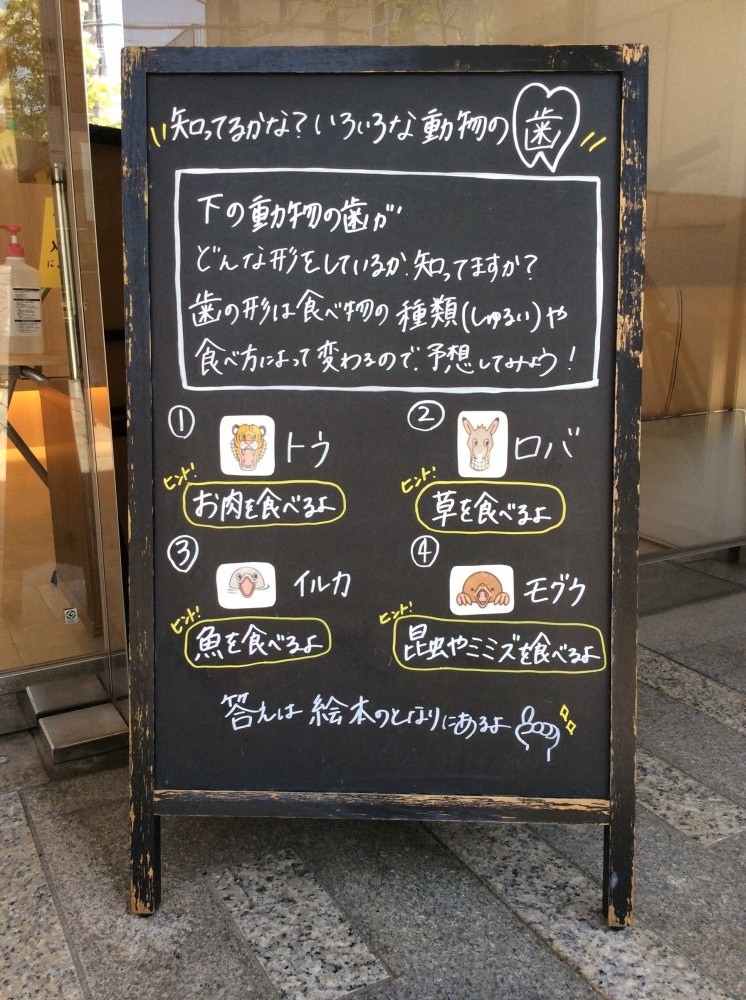 知ってるかな?いろいろな動物の歯
下の動物の歯が
どんな形をしているか、知ってますか?
歯の形は食べ物の種類(しゅるい)や
食べ方によって変わるので、予想してみよう!
① トラ
ヒント!
お肉を食べるよ
② ロバ
ヒント!
草を食べるよ
③ イルカ
ヒント!
魚を食べるよ
④ モグラ
ヒント!
昆虫やミミズを食べるよ
答えは絵本のとなりにあるよ